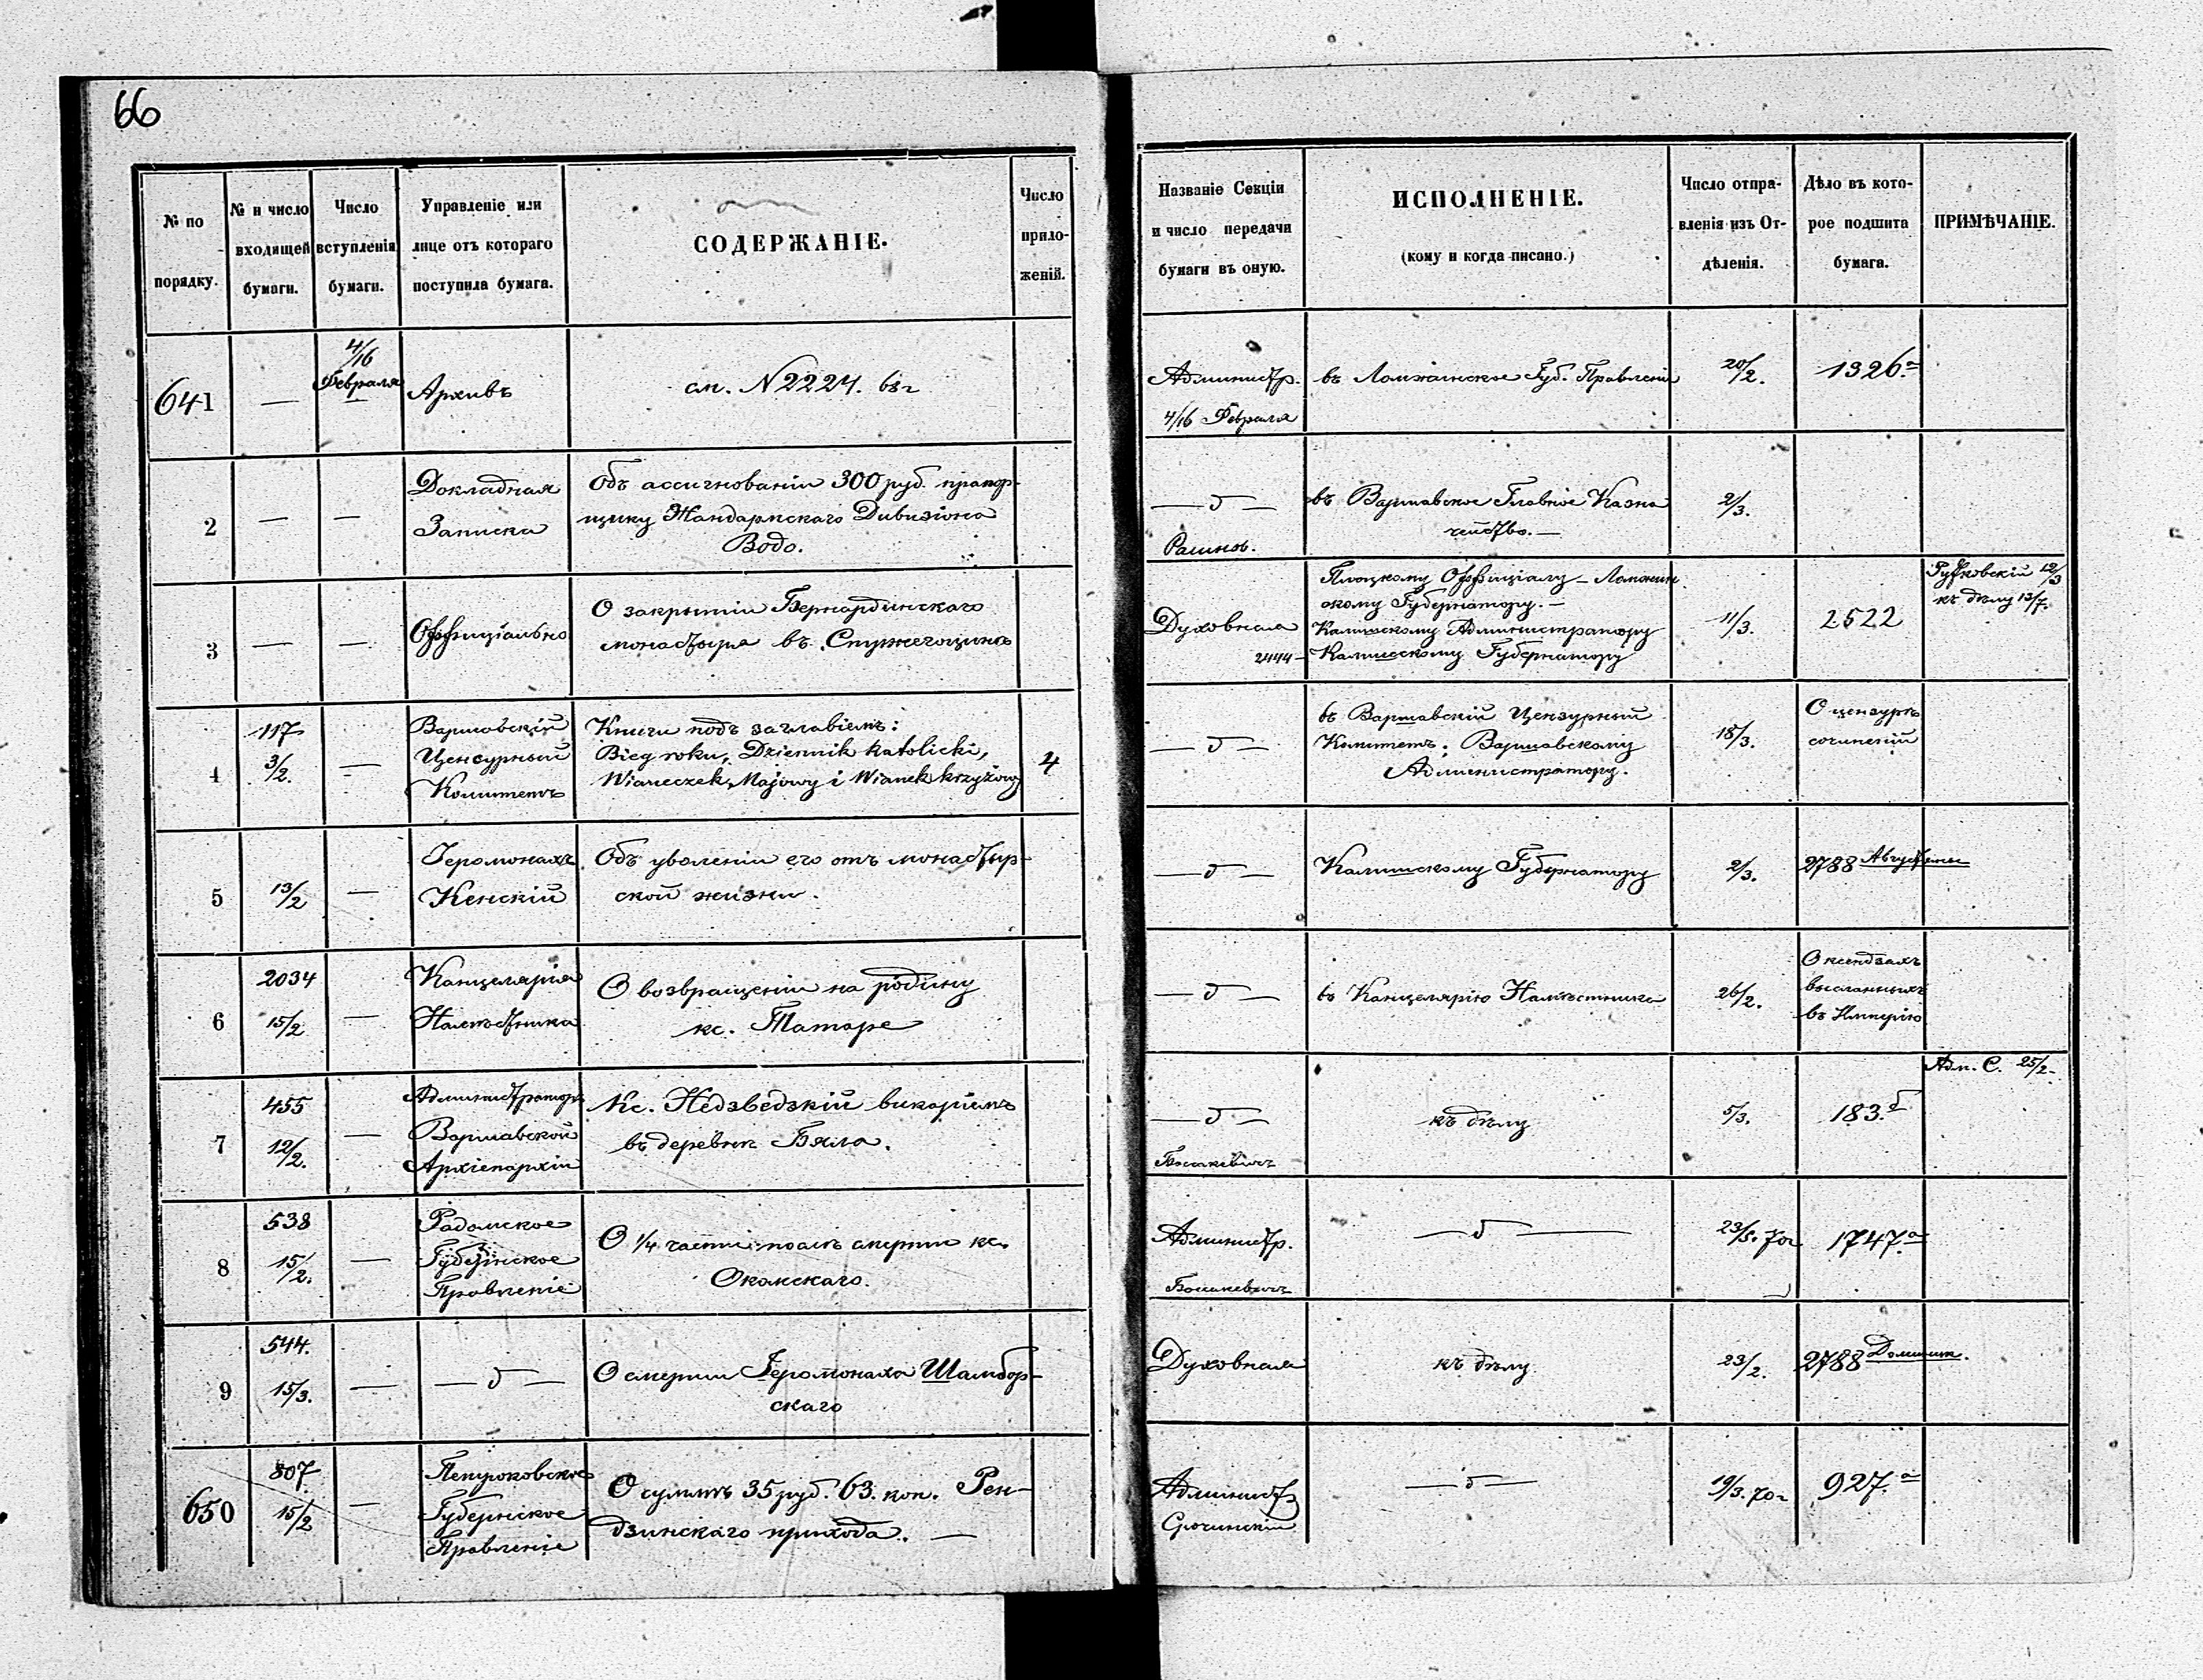 66
№ по порядку.
№ и число входящей бумаги.
Число вступленія бумаги.
Управленіе или лице отъ котораго поступила бумага.
СОДЕРЖАНІЕ.
Число прило-
женій.
Названіе Секціи и число передачи бумаги въ оную.
ИСПОЛНЕНІЕ.
(кому и когда писано.)
Число отпра-
вленія изъ От-
дѣленія.
Дѣло въ кото-
рое подшита бумага.
ПРИМѢЧАНІЕ.
641
—
4/16
Февраля
Архивъ
см. N 2224. 68 г
Администр.
4/16 Февраля
въ Ломжинское Губ. Правленіе
20/2.
1326.а
2
—
—
Докладная
Записка
Объ ассигнованіи 300 руб. прапор-
щику Жандармскаго Дивизіона
Водо.
— д —
въ Варшавское Главное Казна
чейство. —
2/3.
3
—
—
Оффиціально
О закрытіи Бернардинскаго
монастыря въ Стржегоцинѣ
Духовная
2444 —
Плоцкому Оффиціалу — Ломжин
скому Губернатору. —
Калишскому Администратору
Калишскому Губернатору
11/3.
2522
Рутковскій 12/3
къ дѣлу 13/7.
4
117
3/2.
—
Варшавскій
Ценсурный
Комитетъ
Книги подъ заглавіемъ:
Bieg roku, Dziennik katolicki,
Wianeczek Majowy i Wianek krzyżowy
4
— д —
въ Варшавскій Цензурный
Комитетъ; Варшавскому
Администратору.
18/3.
О цензурѣ
сочиненій
5
13/2
—
Іеромонахъ
Кенскій
Объ уволеніи его отъ монастыр-
ской жизни.
— д —
Калишскому Губернатору
2/3.
2788 Августьяны
6
2034
15/2
—
Канцелярія
Намѣстника
О возвращеніи на родину
кс. Татаре
— д —
въ Канцелярію Намѣстника
26/2.
О ксендзахъ
высланныхъ
въ Имперію
7
455
12/2.
—
Администраторъ
Варшавской
Архіепархіи
Кс. Недзведзкій викаріемъ
въ деревнѣ Бяла.
— д —
къ дѣлу
5/3.
183.б
Адм. С. 25/2-
8
538
15/2.
—
Радомское
Губернское
Правленіе
О 1/4 части послѣ смерти кс.
Окомскаго.
Администр.
— д —
23/5. 70г
1747.а
9
544.
15/3.
—
— д —
О смерти Іеромонаха Шамбор-
скаго
Духовная
къ дѣлу
23/2.
2788 Доминик.
650
807.
15/2
—
Петроковское
Губернское
Правленіе
О суммѣ 35 руб. 63. коп. Рен-
дзинскаго прихода. —
Администр
— д —
19/3. 70г
927.а